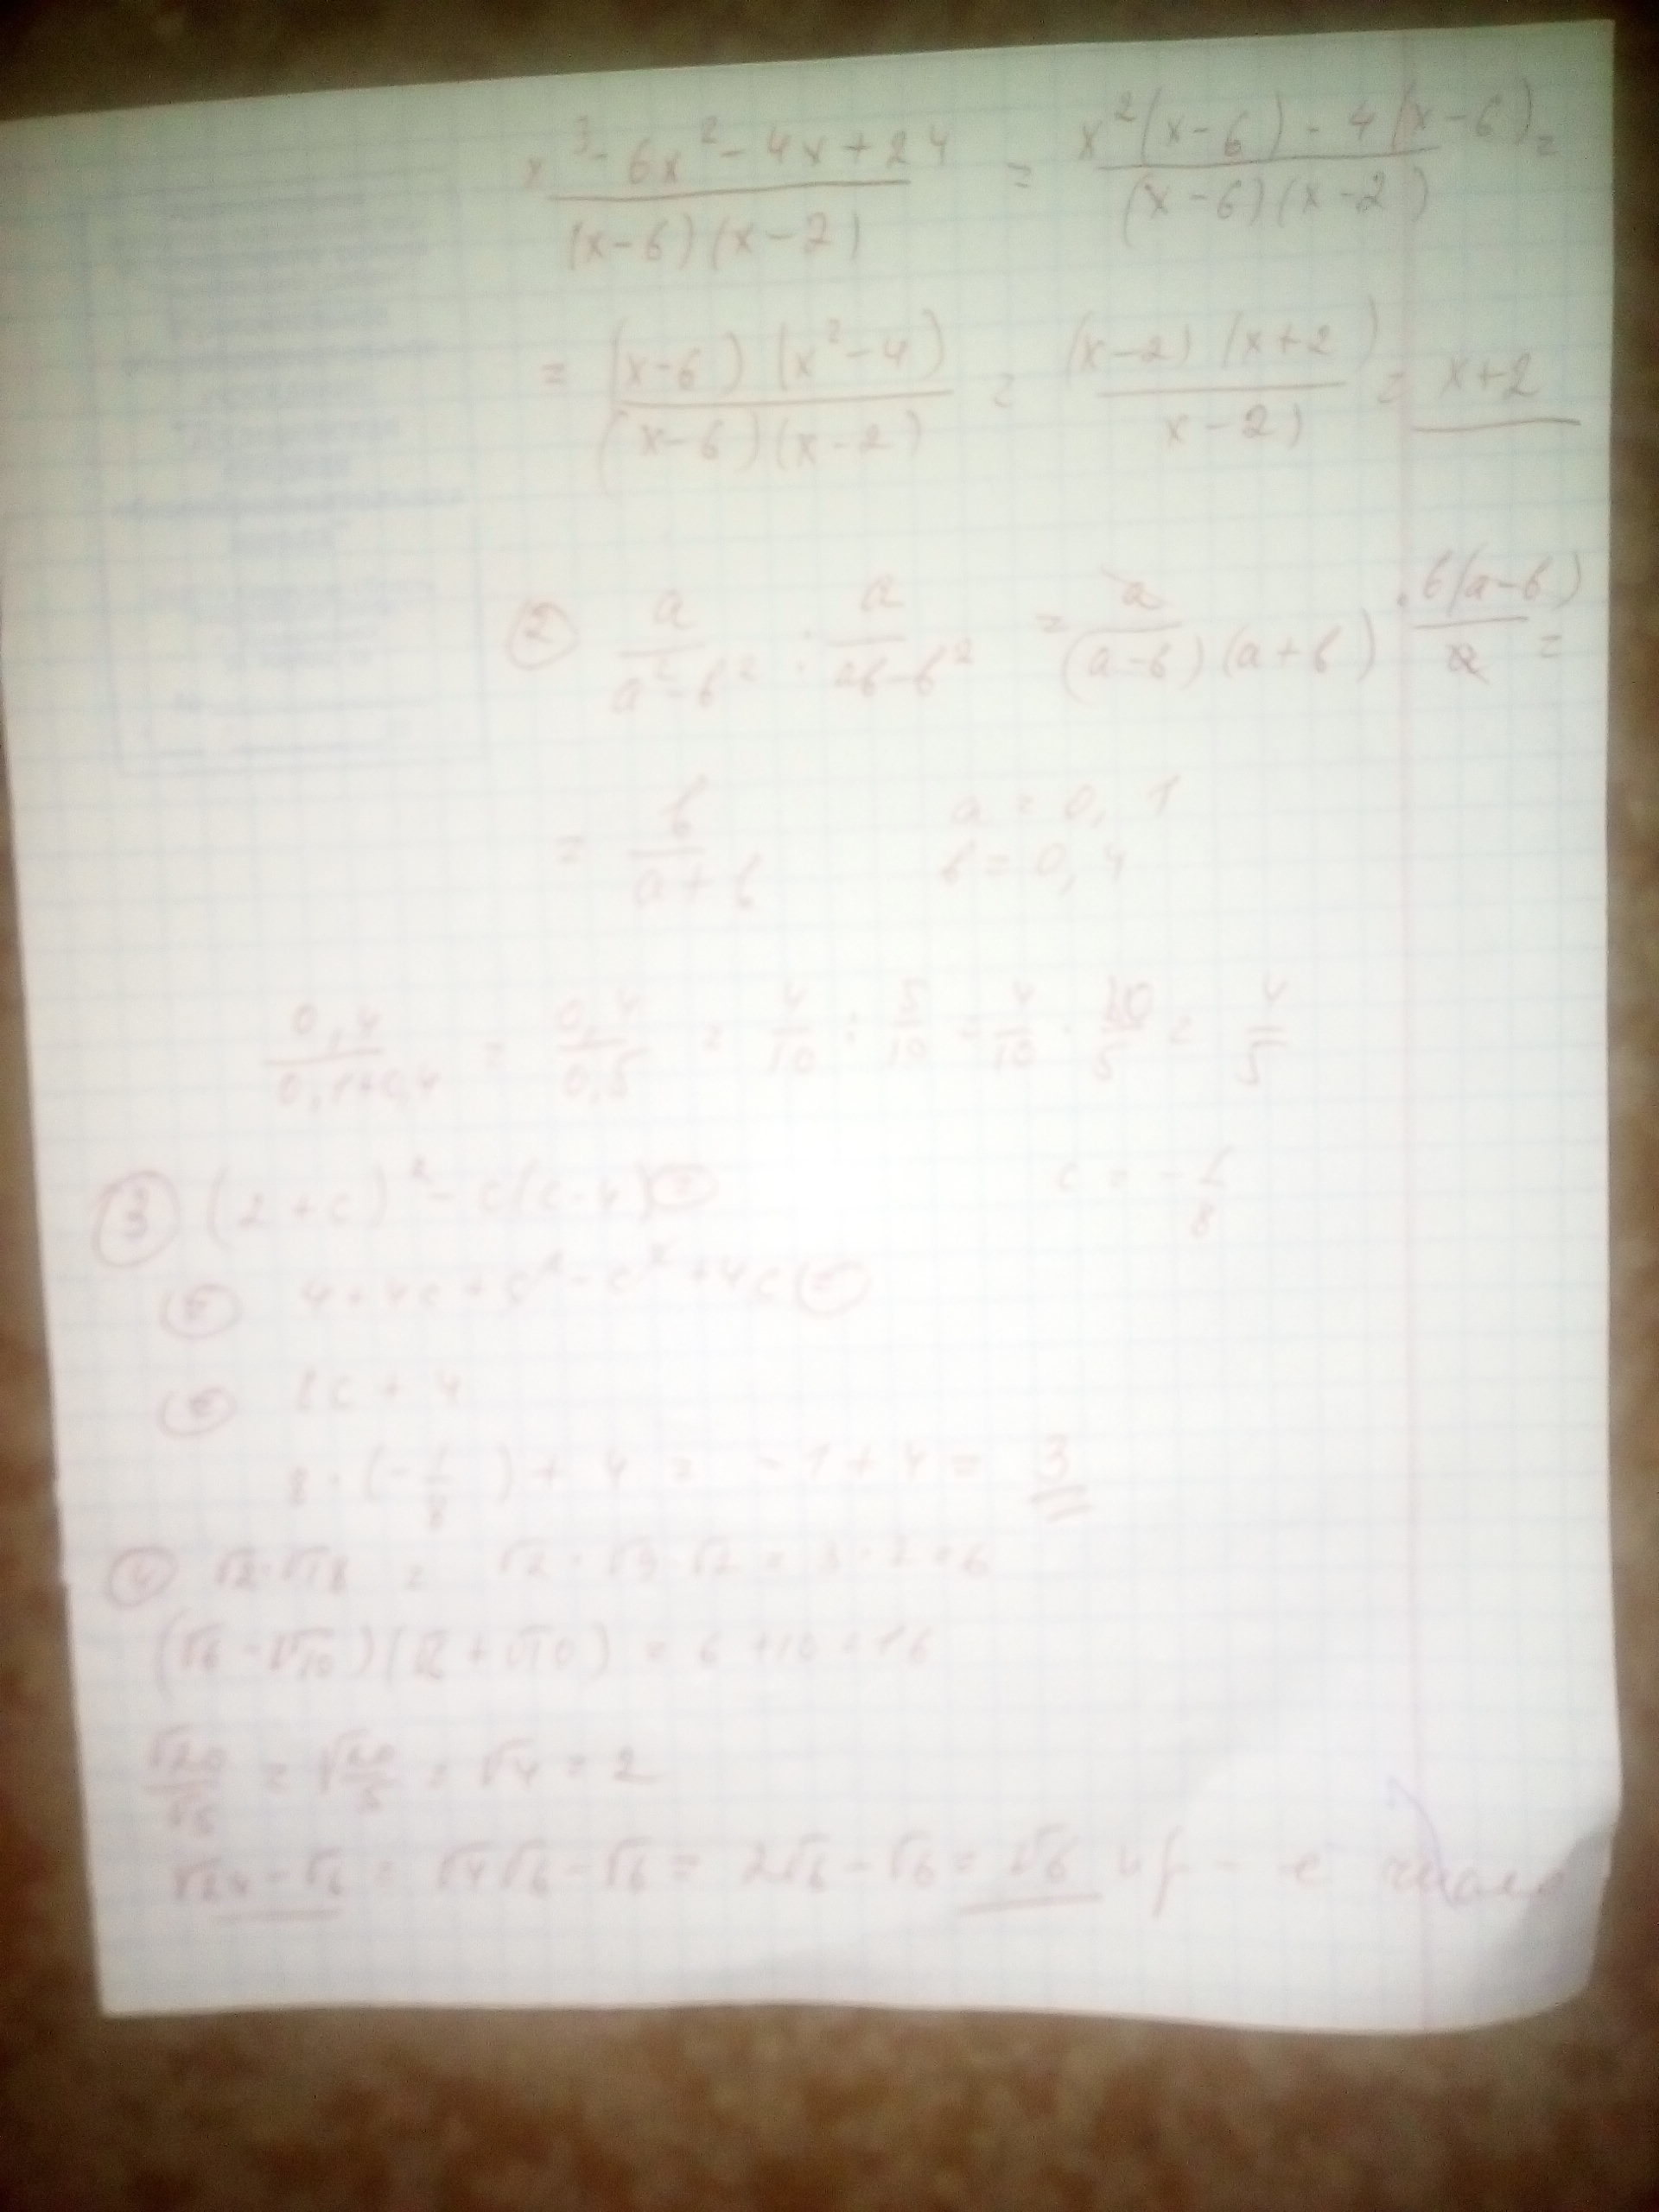 x³ - 6x² - 4x + 24 / (x-6)(x-2) = x²(x-6) - 4(x-6) / (x-6)(x-2) =
= (x-6)(x²-4) / (x-6)(x-2) = (x-2)(x+2) / x-2) = x+2
② a / a²-b² : a / ab-b² = a / (a-b)(a+b) · b(a-b) / a =
= b / a+b a = 0,1
b = 0,4
0,4 / 0,1+0,4 = 0,4 / 0,5 = 4/10 : 5/10 = 4/10 · 10/5 = 4/5
③ (2+c)² - c(c-4) = c = -1/8
= 4+4c+c²-c²+4c =
= 8c + 4
8 · (-1/8) + 4 = -1+4 = 3
④ √2·√18 = √2 · √3 · √2 = 3 · 2 = 6
(√6 - √10)(√6 + √10) = 6 + 10 = 16
√20/√5 = √20/5 = √4 = 2
√24 - √6 = √4√6 - √6 = 2√6 - √6 = √6 ир-е число